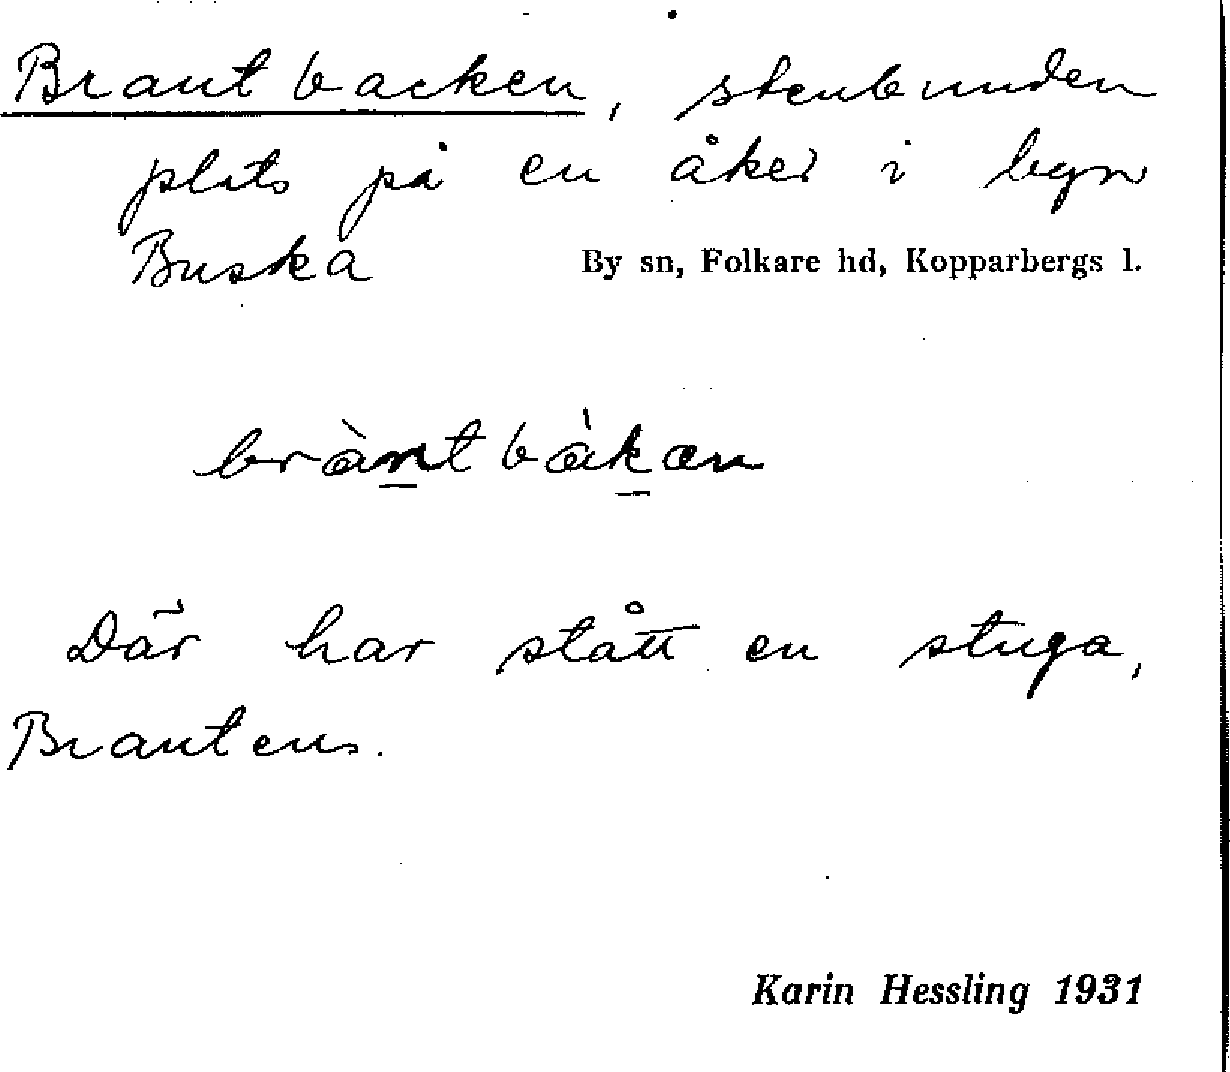 Brantbacken, stenbunden
plats på en åker i byn
Buska By sn, Folkare hd, Kopparbergs l.
bràntbàkan
Där har stått en stuga,
Brantens.
Karin Hessling 1931